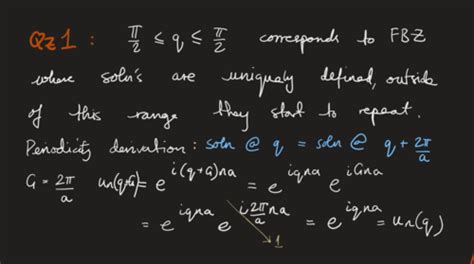 Qz 1 : π/2 ≤ q ≤ π/2 corresponds to FBZ
where soln's are uniquely defined, outside
of this range they start to repeat.
Periodicity derivation: soln @ q = soln @ q + 2π/a
G = 2π/a un(q+G) = e^{i(q+G)na} = e^{iqna} e^{iGna}
= e^{iqna} e^{i 2π/a na} = e^{iqna} = un(q)
→ 1